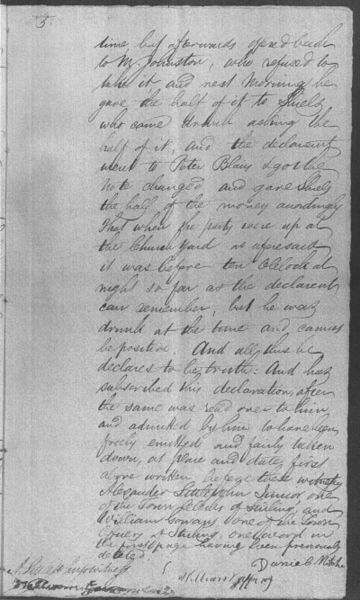 5
time, but afterwards offered back
to Mr Johnston, who refused to
take it and next Morning he
gave the half of it to Shiels
who came asking the
half of it, and the declarent
went to Peter Blair & got the
note changed and gave Shiels
the half of the money accordingly
That when the party were up at
the Church yard as aforesaid
it was before ten OClock at
night so far as the declarent
can remember, but he was
drunk at the time and cannot
be positive And all this he
declares to be truth: And has
subscribed this declaration, after
the same was read over to him
and admitted by him to have been
freely emitted and fairly taken
down, at place and date, first
above written before these witnesses
Alexander Littlejohn Junior one
of the Town Clerks of Stirling, and
William Cowan one of the Town
Officers of Stirling, one word in
the first page having been previously
deleted.
Daniel Mitchell
witness
William